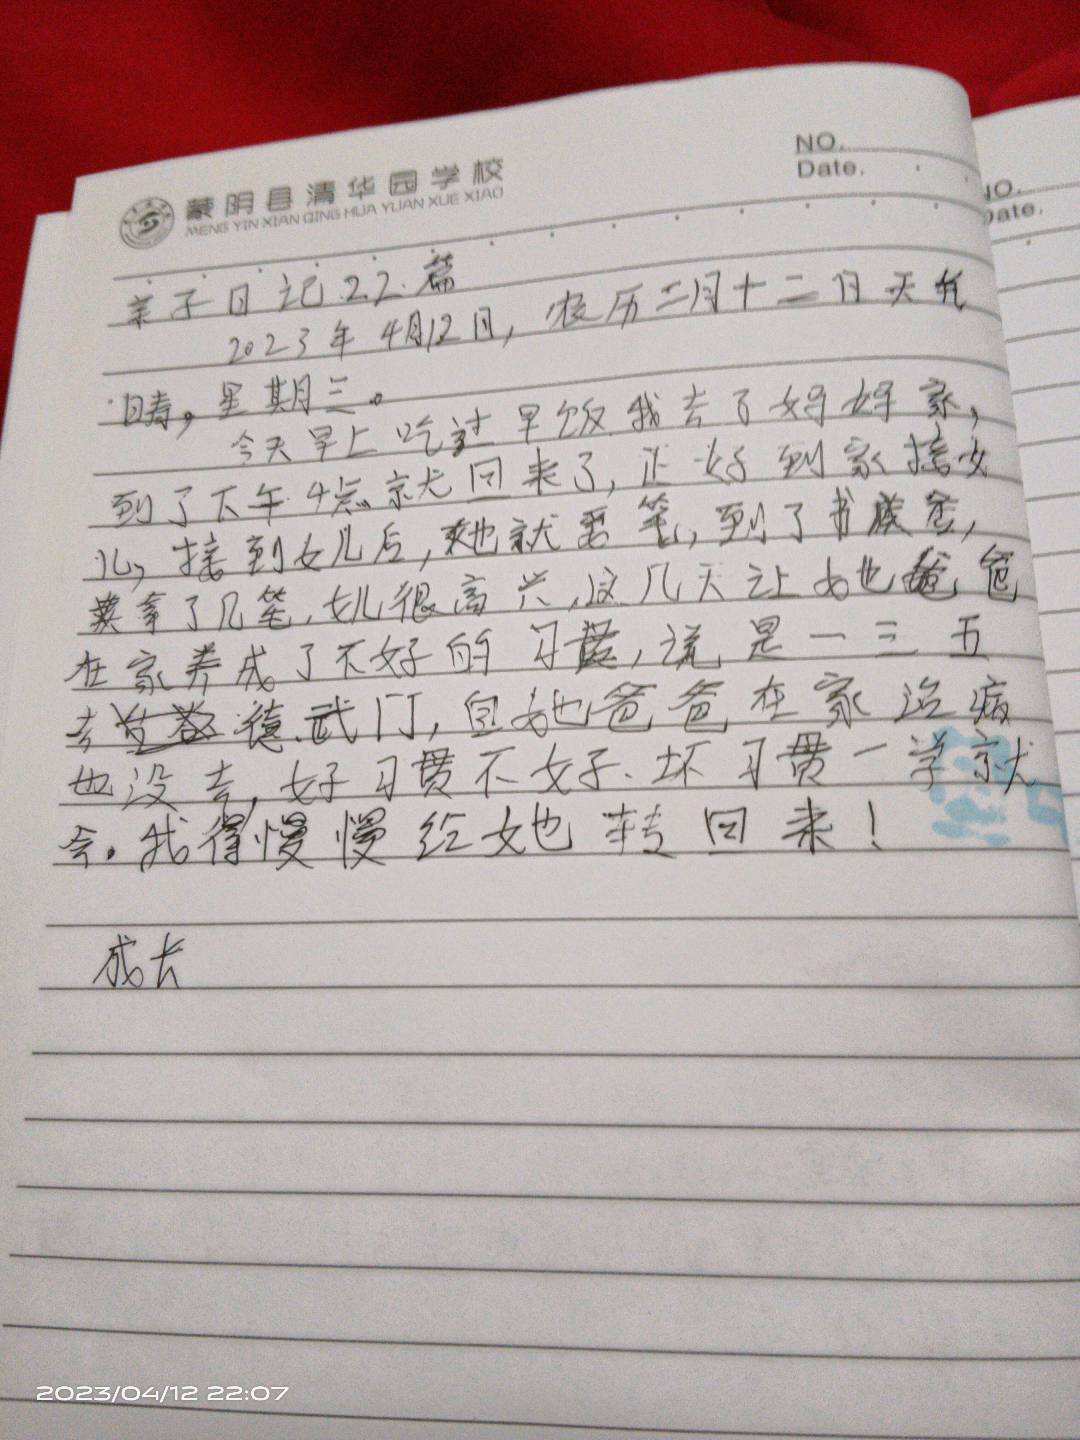 NO.
Date.
蒙阴县清华园学校
MENG YIN XIAN QING HUA YUAN XUE XIAO
NO.
Date.
亲子日记22.篇
2023年4月12日，农历二月十二日天气
晴，星期三。
今天早上吃过早饭我去了好好家，
到了下午4点就回来了，正好到家接女
儿，接到女儿后，她就要笔，到了书
拿了几笔，女儿很高兴，这几天让她爸爸
在家养成了不好的习惯，说是一三五
去 德武门，但她爸爸在家治病
也没去，好习惯不好、坏习惯一学就
会。我得慢慢给她转回来！
成长
2023/04/12 22:07